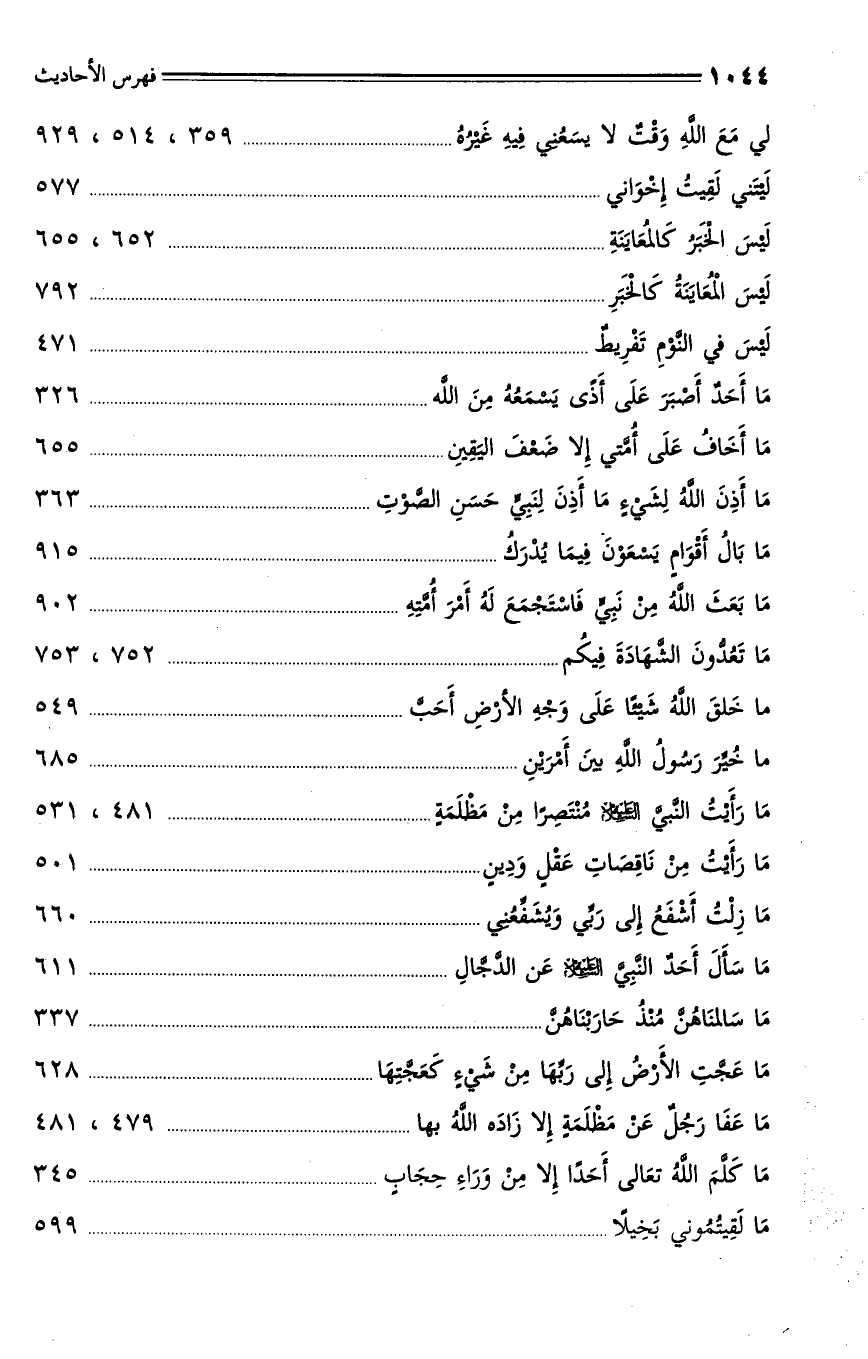 ١٠٤٤ فهرس الأحاديث
لي مَعَ اللَّهِ وَقْتٌ لا يسَعُنِي فِيهِ غَيْرُهُ ........ ٣٥٩ ، ٥١٤ ، ٩٢٩
لَيْتَني لَقِيتُ إِخْوَاني ........ ٥٧٧
لَيْسَ الخَبَرُ كَالمُعَايَنَةِ ........ ٦٥٢ ، ٦٥٥
لَيْسَ الْمُعَايَنَةُ كَالْخَبَرِ ........ ٧٩٢
لَيْسَ في النَّوْمِ تَفْرِيطٌ ........ ٤٧١
مَا أَحَدٌ أَصْبَرَ عَلَى أَذًى يَسْمَعُهُ مِنَ اللَّه ........ ٣٢٦
مَا أَخَافُ عَلَى أُمَّتي إِلا ضَعْفَ اليَقِينِ ........ ٦٥٥
مَا أَذِنَ اللَّهُ لِشَيْءٍ مَا أَذِنَ لِنَبِيٍّ حَسَنِ الصَّوْتِ ........ ٣٦٣
مَا بَالُ أَقْوَامٍ يَسْعَوْنَ فِيمَا يُدْرَكُ ........ ٩١٥
مَا بَعَثَ اللَّهُ مِنْ نَبِيٍّ فَاسْتَجْمَعَ لَهُ أَمْرَ أُمَّتِهِ ........ ٩٠٢
مَا تَعُدُّونَ الشَّهَادَةَ فِيكُم ........ ٧٥٢ ، ٧٥٣
ما خَلقَ اللَّهُ شَيْئًا عَلَى وَجْهِ الأرْضِ أَحَبَّ ........ ٥٤٩
ما خُيِّرَ رَسُولُ اللَّهِ بينَ أَمْرَيْنِ ........ ٦٨٥
مَا رَأَيْتُ النَّبيَّ ﷺ مُنْتَصِرًا مِنْ مَظْلَمَةٍ ........ ٤٨١ ، ٥٣١
مَا رَأَيْتُ مِنْ نَاقِصَاتِ عَقْلٍ وَدِينٍ ........ ٥٠١
مَا زِلْتُ أَشْفَعُ إِلى رَبِّي وَيُشَفِّعُنِي ........ ٦٦٠
مَا سَأَلَ أَحَدٌ النَّبِيَّ ﷺ عَن الدَّجَّالِ ........ ٦١١
مَا سَالمنَاهُنَّ مُنْذُ حَارَبْنَاهُنَّ ........ ٣٣٧
مَا عَجَّتِ الأَرْضُ إِلى رَبِّهَا مِنْ شَيْءٍ كَعَجَّتِهَا ........ ٦٢٨
مَا عَفَا رَجُلٌ عَنْ مَظْلَمَةٍ إِلا زَادَه اللَّهُ بها ........ ٤٧٩ ، ٤٨١
مَا كَلَّمَ اللَّهُ تعَالى أَحَدًا إِلا مِنْ وَرَاءِ حِجَابٍ ........ ٣٤٥
مَا لَقِيتُمُوني بَخِيلًا ........ ٥٩٩